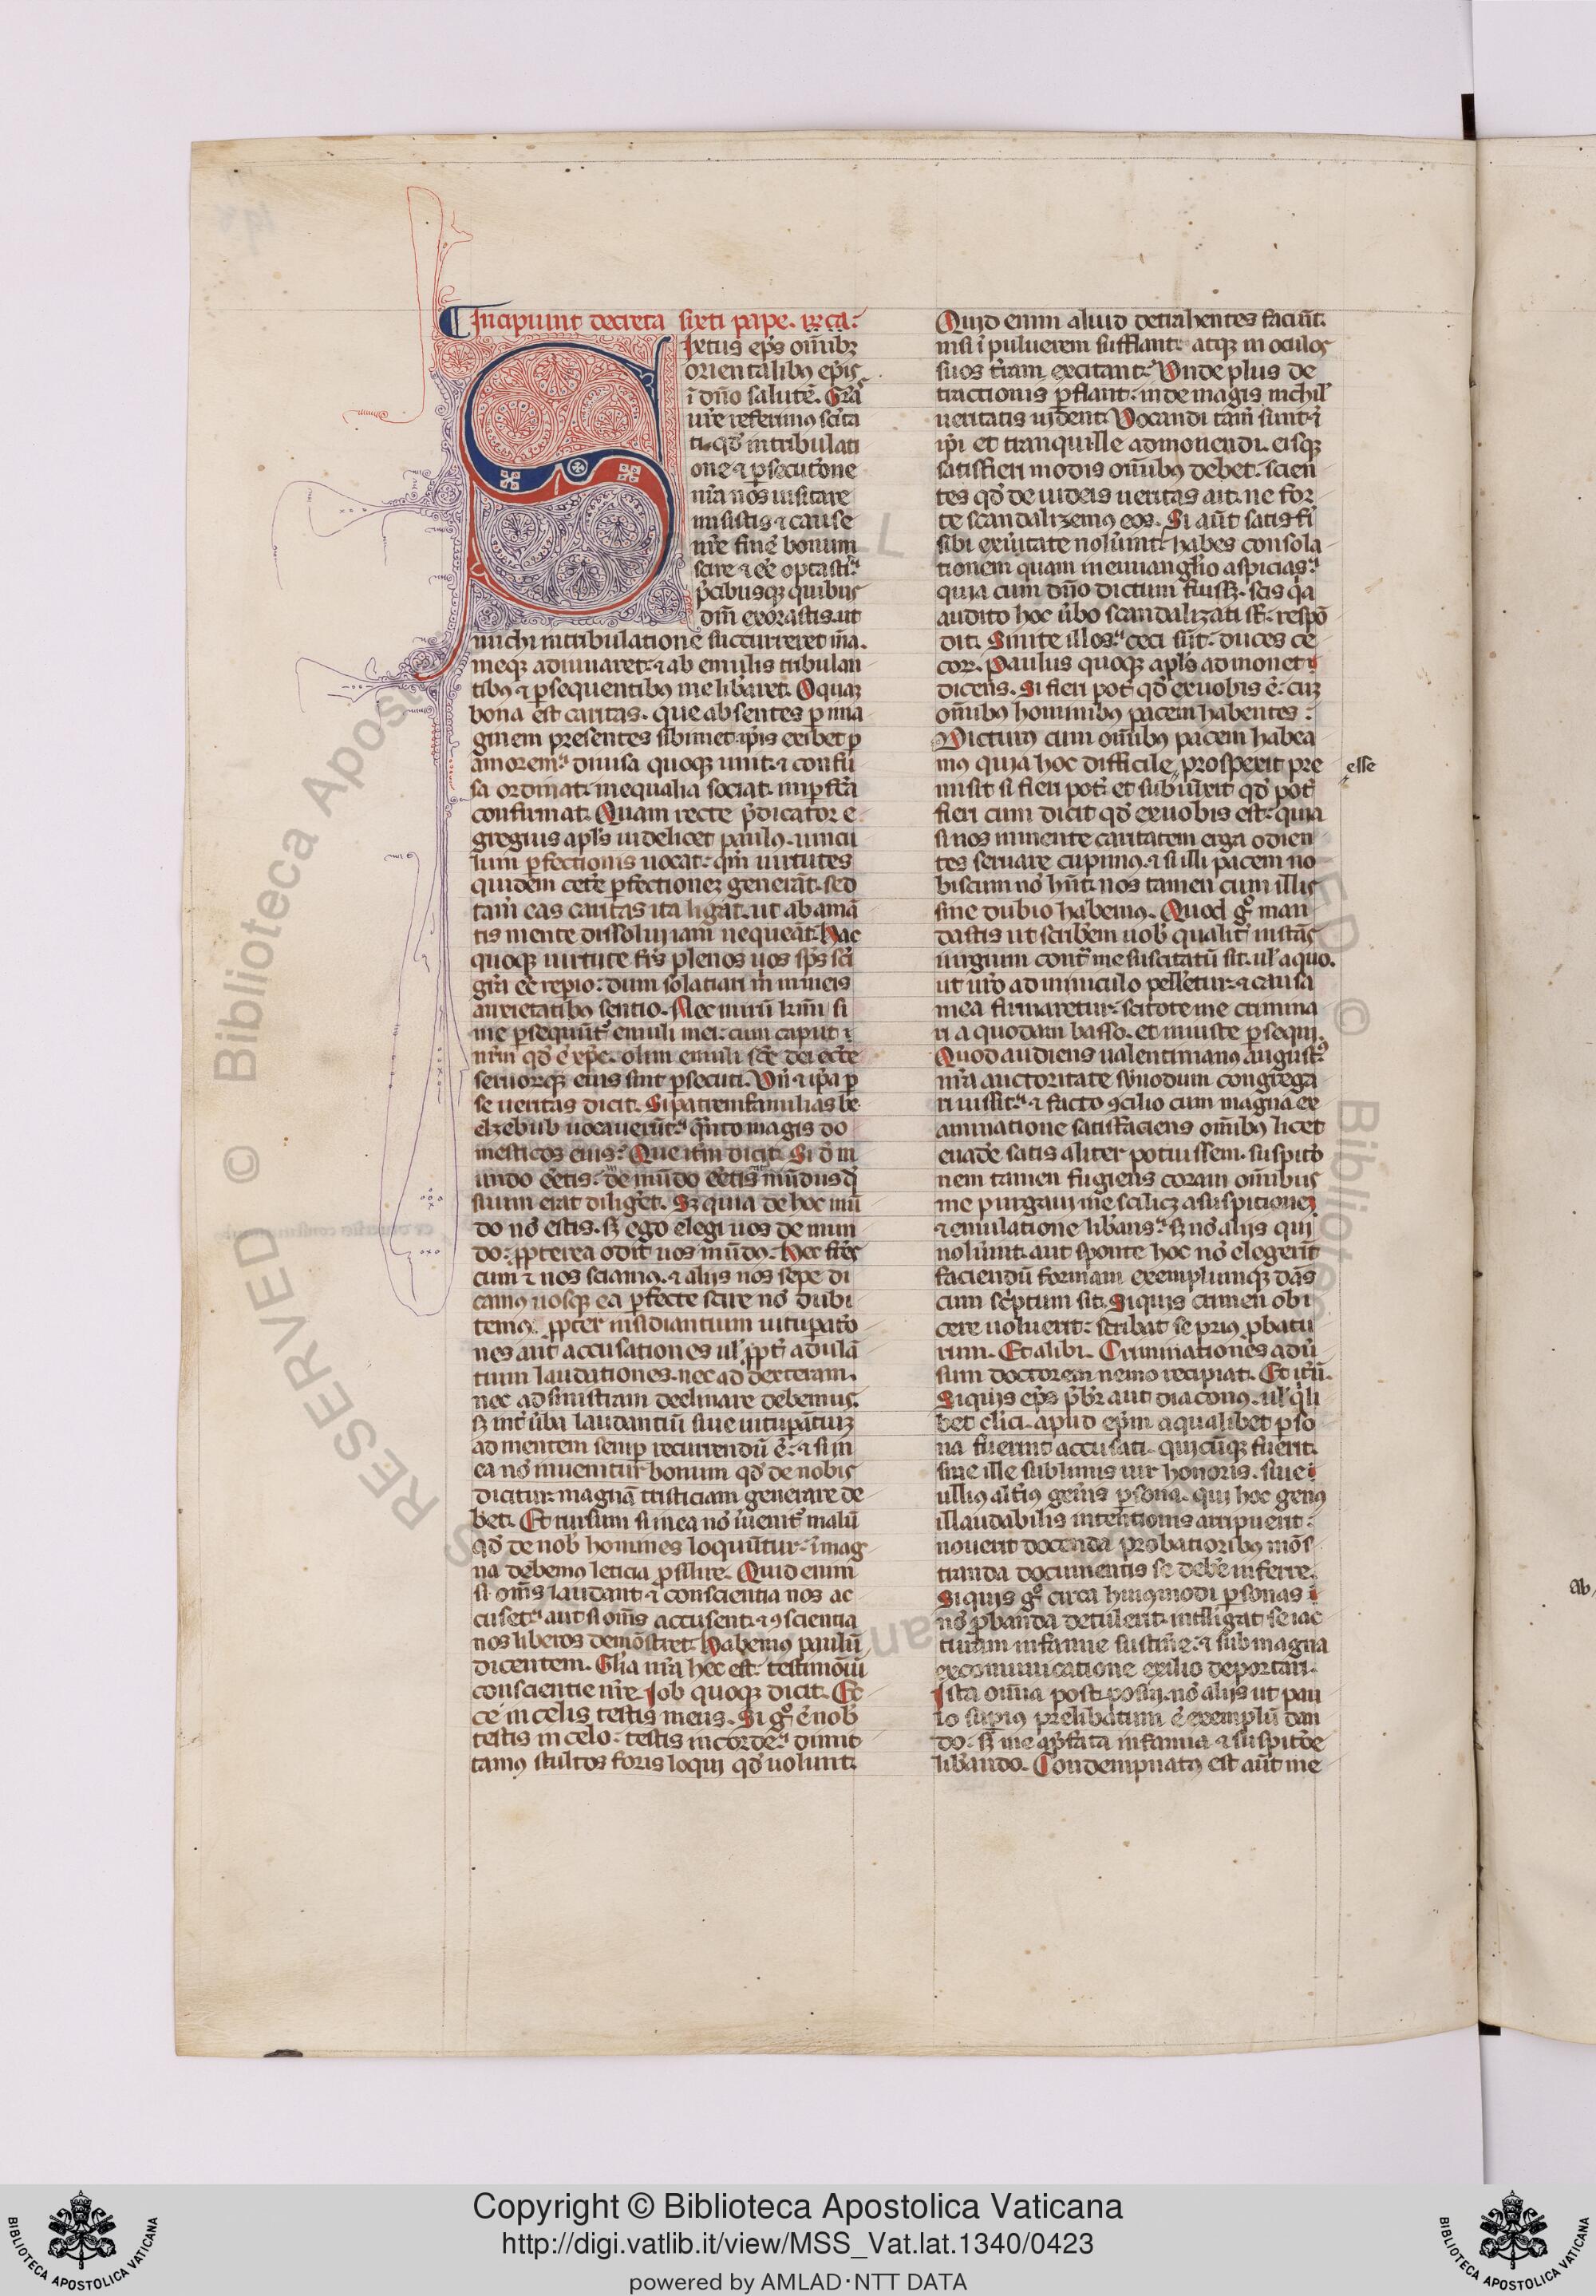 Incipiunt decreta sixti pape. ix. ca.
Ixtus ep̄s om̄ibȝ
orientalibꝰ ep̄is
ī dn̄o salutē. Gr̄a
ur̄e referimꝰ sc̄ita
ti. qd̄ in tribulati
one ⁊ ꝑsecut̄one
nr̄a nos uisitare
misistis ⁊ cause
nr̄e finē bonum
scire ⁊ eē optastis
p̄cibusqꝫ quibus
dm̄ exorastis. ut
michi in tribulatione succurreret in̄a.
meqꝫ adiuuaret. ⁊ ab emulis tribulan
tibꝰ ⁊ ꝑsequentibꝰ me lib̄aret. O quaȝ
bona est caritas. que absentes ꝑ ima
ginem presentes sibimet ip̄is exibet ꝑ
amorem. diuisa quoqꝫ unit. ⁊ confu
sa ordinat. inequalia sociat. inꝑfc̄a
confirmat. Quam recte p̄dicator e
gregius apl̄s uidelicet paulꝰ. uincu
lum ꝑfectionis uocat. qm̄ uirtutes
quidem cet̄e ꝑfectioneȝ generāt. sed
tam̄ eas caritas ita ligat. ut ab amā
tis mente dissolui iam nequeāt. Hac
quoqꝫ uirtute fr̄s plenos uos sp̄s sc̄i
gr̄a eē reperio. dum solatiari m̄ in meis
anxietatibꝰ sentio. Nec mirū kr̄mi si
me ꝑsequūt̄ emuli mei. cum caput
nr̄m qd̄ ē xp̄c. olim emuli sc̄e dei ecc̄e
seruorqꝫ eius sint ꝑsecuti. Vn̄ ⁊ ip̄a ꝑ
se ueritas dicit. Si patremfamilias be
elzebub uocauerūt. qn̄to magis do
mesticos eius. Que it̄m dicit. Si d̄ m
undo eētis. de mūdo eētis mūdus qd̄
suum erat diliget. Sȝ quia de hoc mū
do nō estis. sȝ ego elegi uos de mun
do. ꝓpterea odit uos mūdꝰ. Hec fr̄es
cum ⁊ nos sciamꝰ. ⁊ aliis nos sepe di
camꝰ uosqꝫ ea ꝑfecte scire nō dubi
temꝰ. ꝓpter insidiantium uituꝑat̄o
nes aut accusationes ul̓ ꝓpt̄ adulā
tium laudationes. nec ad dexteram.
nec ad sinistram declinare debemus.
sȝ int̄ ūba laudantiū siue uituꝑantiuȝ
ad mentem semꝑ recurrendū ē. ⁊ si in
ea nō inuenitur bonum qd̄ de nobis
dicitur. magnā tristiciam generare de
bet. Et rursum si in ea nō īuenit̄ malū
qd̄ de nob̄ homines loquūtur. ī mag
na debemꝰ leticia ꝓsilire. Quid enim
si om̄s laudant ⁊ conscientia nos ac
cuset. aut si om̄s accusent. ⁊ ꝯscientia
nos liberos demōstret. Habemꝰ paulū
dicentem. Gl̄ia nr̄a hec est. testimōiū
conscientie nr̄e. Iob quoqꝫ dicit. Ec
ce in celis testis meus. Si gͦ ē nob̄
testis in celo. testis in corde. dimit
tamꝰ stultos foris loqui qd̄ uolunt.
Quid enim aliud detrahentes faciūt.
nisi ī puluerem sufflant. atqꝫ in oculos
suos t̄ram excitant. Vnde plus de
tractionis ꝑflant. inde magis nichil
ueritatis uident. Vocandi tam̄ sunt ⁊
ip̄i et tranquille admonendi. eisqꝫ
satisfieri modis om̄ibꝰ debet. scien
tes qd̄ de iudeis ueritas ait. ne for
te scandalizemꝰ eos. Si aūt satisfi
sibi ex ūitate nolūint. habes consola
tionem quam in euuangl̄io aspicias.
quia cum dn̄o dictum fuissȝ. scis qa
audito hoc ūbo scandalizati sт̄. respō
dit. Sinite illos. ceci sūt. duces ce
coꝝ. Paulus quoqꝫ apl̄s admonet
dicens. Si fieri pot̄ qd̄ ex uobis ē. cuȝ
om̄ibꝰ hominibꝰ pacem habentes.
Dicturꝰ cum om̄ibꝰ pacem habea
mꝰ quia hoc difficile prospexit pre
esse
misit si fieri pot̄ et subiūxit qd̄ pot̄
fieri cum dicit qd̄ ex uobis est. quia
si nos in mente caritatem erga odien
tes seruare cupimꝰ. ⁊ si illi pacem no
biscum nō hn̄t. nos tamen cum illis
sine dubio habemꝰ. Quod gͦ man
dastis ut scrib̄em uob̄ qualit̄ instās
iurgium cont̄ me suscitatū sit. ul̓ a quo.
ut ur̄o adminiculo pell̄etur. ⁊ causa
mea firmaretur. scitote me crimina
ri a quodam basso. et iniuste ꝑsequi.
Quod audiens ualentinianꝰ augustꝰ
nr̄a auctoritate synodum congrega
ri iussit. ⁊ facto ꝯcilio cum magna ex
aminatione satisfaciens om̄ibꝰ licet
euad̄e satis aliter potuissem. suspit̄o
nem tamen fugiens coram om̄ibus
me purgaui me scilicȝ a suspitioneȝ
⁊ emulatione lib̄ans. sȝ nō aliis qui
nolūint. aut sponte hoc nō elegerīt
faciendū formam exemplumqꝫ dās
cum sc̄ptum sit. Siquis crimen obi
cere uoluerit. scribat se priꝰ ꝓbatu
rum. Et alibi. Criminationes adū
sum doctorem nemo recipiat. Et it̄ū.
Siquis ep̄s pb̄r aut diaconꝰ. ul̓ qͥli
bet cl̄ici. apud ep̄m a qualibet ꝑso
na fuerint accusati. quicūqꝫ fuerit.
siue ille sublimis uir honoris. siue
ullius alt̄ius gen̄is ꝑsona. qui hoc genꝰ
illaudabilis intentionis arripuerit.
nouerit docenda probationibꝰ mōs
tranda documentis se deb̄e inferre.
Siquis gͦ circa huiꝰmodi ꝑsonas
nō ꝓbanda detulerit. intelligat se iac
turam infamie sustin̄e. ⁊ sub magna
excomunicatione exilio deportari.
Ista om̄ia post posui. nō aliis ut pau
lo supiꝰ prelibatum ē exemplū dan
do. sȝ me a p̄fata infamia ⁊ suspit̄oe
lib̄ando. Condempnatꝰ est aūt me
ab
© Biblioteca Apostolica Vaticana
ALL RIGHTS RESERVED
Copyright © Biblioteca Apostolica Vaticana
http://digi.vatlib.it/view/MSS_Vat.lat.1340/0423
powered by AMLAD·NTT DATA
BIBLIOTECA APOSTOLICA VATICANA
BIBLIOTECA APOSTOLICA VATICANA